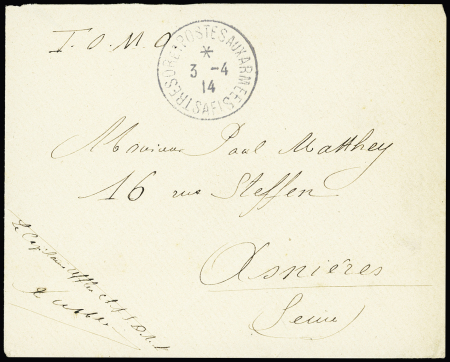 T. O. M. O.
TRESOR ET POSTES AUX ARMEES
*
3 -4
14
SAFI
Monsieur Paul Matthey
16 rue Steffen
Asnières
Seine
Le Capitaine